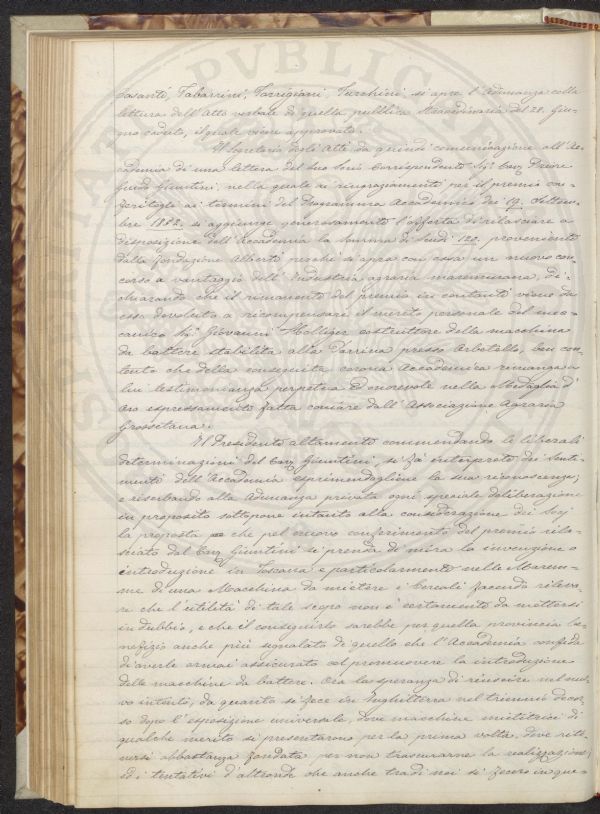 Casanti, Tabarrini, Torrigiani, Turchini si apre l'Adunanza colla
lettura dell'Atto verbale di quella pubblica Straordinaria del 28. Giu-
gno caduto, il quale viene approvato.
Il Segretario degli Atti dà quindi comunicazione all'Ac-
cademia di una lettera del suo Socio Corrispondente Sig. Cav. Priore
Guido Giuntini, nella quale ai ringraziamenti per il premio con-
feritogli ai termini del Programma Accademico dei 19. Settem-
bre 1852. si aggiunge generosamente l'offerta di rilasciare a
disposizione dell'Accademia la somma di Scudi 120. proveniente
dalla fondazione Alberti perchè si apra con essa un nuovo con-
corso a vantaggio dell'Industria agraria maremmana, di-
chiarando che il rimanente del premio in contanti viene da
esso devoluto a ricompensare il merito personale del mec-
canico Sig. Giovanni Holliger costruttore della macchina
da battere stabilita alla Parrina presso Orbetello, ben con-
tento che della conseguita corona Accademica rimanga a
lui testimonianza perpetua ed onorevole nella Medaglia d'
Oro espressamente fatta coniare dall'Associazione Agraria
Grossetana.
Il Presidente altamente commendando le liberali
determinazioni del Cav. Giuntini, si fà interprete dei Senti-
menti dell'Accademia esprimendogliene la sua riconoscenza;
e riserbando alla Adunanza privata ogni speciale deliberazione
in proposito sottopone intanto alla considerazione dei Socj
la proposta che pel nuovo conferimento del premio rila-
sciato dal Cav. Giuntini si prenda di mira la invenzione o
introduzione in Toscana e particolarmente nelle Marem-
me di una Macchina da mietere i Cereali facendo rileva-
re che l'utilità di tale scopo non è certamente da mettersi
in dubbio, e che il conseguirlo sarebbe per quella provincia be-
nefizio anche più segnalato di quello che l'Accademia confida
di averle ormai assicurato col promuovere la introduzione
delle macchine da battere. Ora la speranza di riuscire nel nuo-
vo intento, da quanto si fece in Inghilterra nel triennio decor-
so dopo l'esposizione universale, dove macchine mietitrici di
qualche merito si presentarono per la prima volta, deve rite-
nersi abbastanza fondata per non trascurarne la realizzazione;
ed i tentativi d'altronde che anche tra di noi si fecero in que-